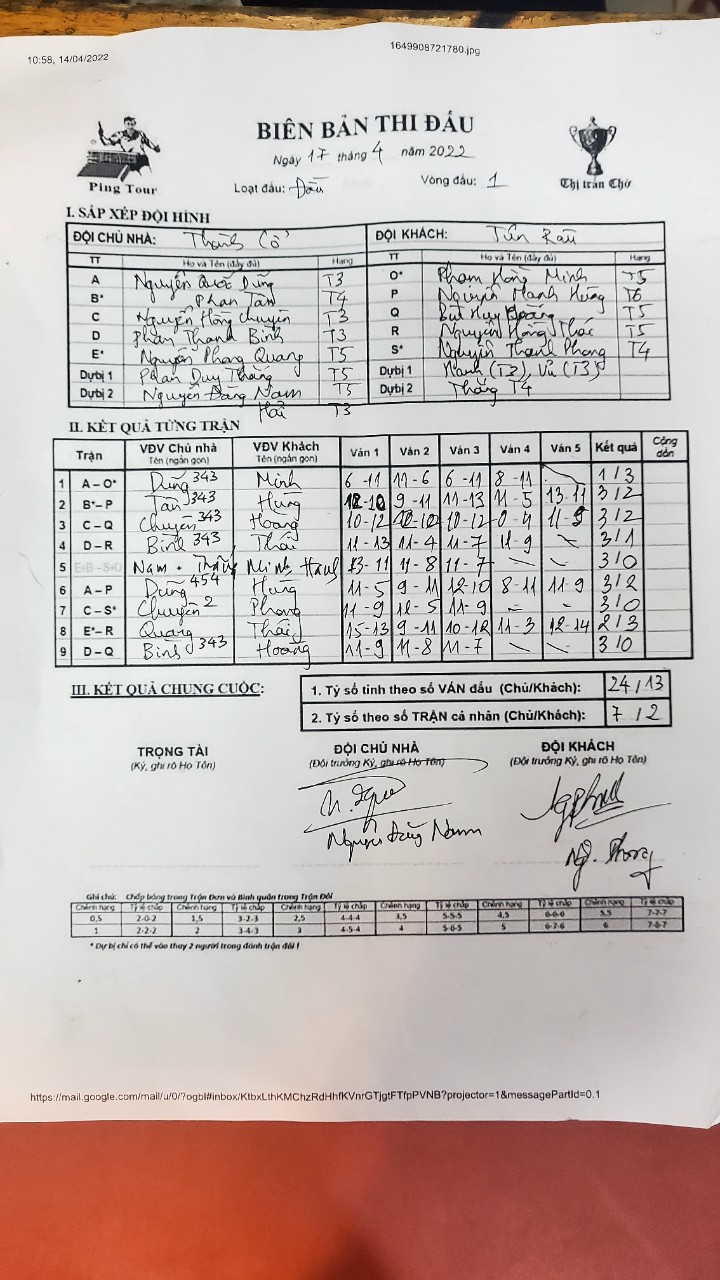 10:58, 14/04/2022
1649908721780.jpg
BIÊN BẢN THI ĐẤU
Ngày 17 tháng 4 năm 2022
Ping Tour
Loại đấu:
Vòng đấu: 1
Thị trấn Chờ
I. SẮP XẾP ĐỘI HÌNH
ĐỘI CHỦ NHÀ: Thành Cò
ĐỘI KHÁCH:
TT Họ và Tên (đầy đủ) Hạng TT Họ và Tên (đầy đủ) Hạng
A Nguyễn Quốc Dũng T3 O* Phạm Hồng Minh T5
B* Phan Tân T4 P Nguyễn Mạnh Hùng T6
C Nguyễn Hồng Chuyên T3 Q Bùi Huy Hoàng T5
D Phan Thanh Bình T3 R Nguyễn Hồng Thái T5
E* Nguyễn Phong Quang T5 S* Nguyễn Thanh Phong T4
Dự bị 1 Phan Duy Thắng T5 Dự bị 1 Mạnh (T2), Vũ (T3)
Dự bị 2 Nguyễn Đăng Nam T5 Dự bị 2 Thắng T4
Hải T3
II. KẾT QUẢ TỪNG TRẬN
Trận VĐV Chủ nhà Tên (ngắn gọn) VĐV Khách Tên (ngắn gọn) Ván 1 Ván 2 Ván 3 Ván 4 Ván 5 Kết quả Cộng dồn
1 A – O* Dũng 343 Minh 6 - 11 11 - 6 6 - 11 8 - 11 1/3
2 B* – P Tân 343 Hùng 12-10 9 - 11 11 - 13 11 - 5 13 - 11 3/2
3 C – Q Chuyên 343 Hoàng 10 - 12 12-10 10 - 12 11 - 9 3/2
4 D – R Bình 343 Thái 11 - 13 11 - 4 11 - 7 11 - 9 3/1
5 Nam - Minh 13 - 11 11 - 8 11 - 7 3/0
6 A – P Dũng 454 Hùng 11 - 5 9 - 11 12-10 8 - 11 11 - 9 3/2
7 C – S* Chuyên 2 Phong 11 - 9 12 - 5 11 - 9 3/0
8 E* – R Quang Thái 15-13 9 - 11 10 - 12 11 - 3 12 - 14 2/3
9 D – Q Bình 343 Hoàng 11 - 9 11 - 8 11 - 7 3/0
III. KẾT QUẢ CHUNG CUỘC:
1. Tỷ số tính theo số VÁN đấu (Chủ/Khách): 24/13
2. Tỷ số theo số TRẬN cá nhân (Chủ/Khách): 7/2
TRỌNG TÀI
(Ký, ghi rõ Họ Tên)
ĐỘI CHỦ NHÀ
(Đội trưởng Ký, ghi rõ Họ Tên)
Nguyễn Đăng Nam
ĐỘI KHÁCH
(Đội trưởng Ký, ghi rõ Họ Tên)
Ng. Phong
Ghi chú: Chấp bóng trong Trận Đơn và Bình quân trong Trận Đôi
Chênh hạng Tỷ lệ chấp Chênh hạng Tỷ lệ chấp Chênh hạng Tỷ lệ chấp Chênh hạng Tỷ lệ chấp Chênh hạng Tỷ lệ chấp Chênh hạng Tỷ lệ chấp
0,5 2-0-2 1,5 3-2-3 2,5 4-4-4 3,5 5-5-5 4,5 6-6-6 5,5 7-7-7
1 2-2-2 2 3-4-3 3 4-5-4 4 5-6-5 5 6-7-6 6 7-8-7
* Dự bị chỉ có thể vào thay 2 người trong đánh trận đôi !
https://mail.google.com/mail/u/0/?ogbl#inbox/KtbxLthKMChzRdHhfKVnrGTjgtFTfpPVNB?projector=1&messagePartId=0.1